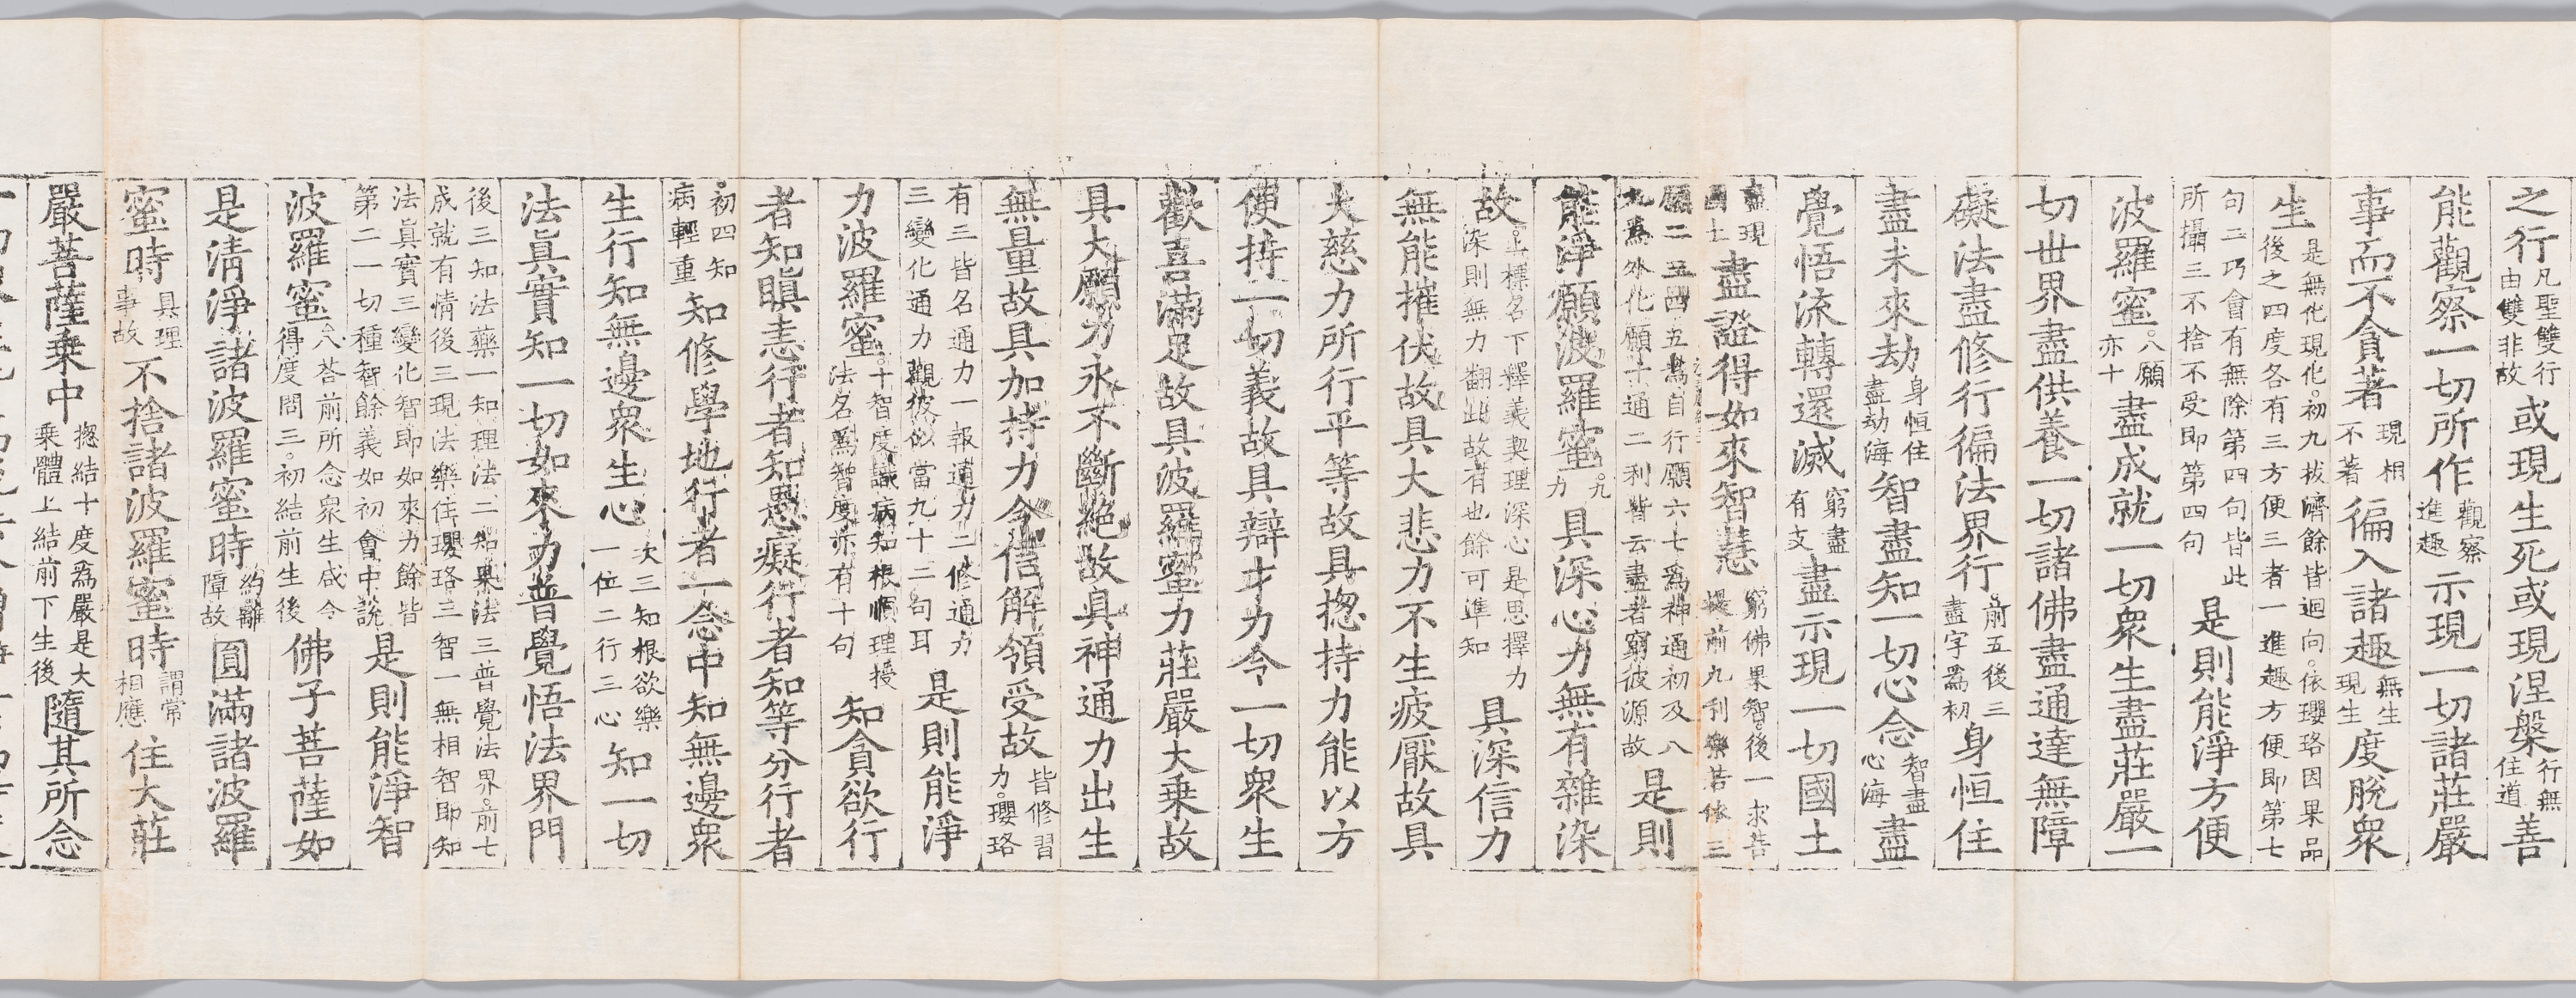 之行凡聖雙行由雙非故或現生死或現涅槃行無住道善
能觀察一切所作觀察進趣示現一切諸莊嚴
事而不貪著現相不著徧入諸趣無生現生度脫衆
生是無化現化。初九拔濟餘皆迴向。依瓔珞因果品後之四度各有三方便三者一進趣方便即第七
句二巧會有無除第四句皆此所攝三不捨不受即第四句是則能淨方便
波羅蜜。八願亦十盡成就一切衆生盡莊嚴一
切世界盡供養一切諸佛盡通達無障
礙法盡修行徧法界行。前五後三盡字爲初身恒住
盡未來劫身恒住盡劫海智盡知一切心念智盡心海盡
覺悟流轉還滅窮盡有支盡示現一切國土
盡現國土盡證得如來智慧窮佛果智。後一求菩提前九利樂若依三
願二五四五爲自行願六七爲神通初及八九爲外化願十通二利皆云盡者窮彼源故是則
能淨願波羅蜜。九力具深心力無有雜染
故。上標名下釋義契理深心是思擇力染則無力翻此故有也餘可準知具深信力
無能摧伏故具大悲力不生疲厭故具
大慈力所行平等故具揔持力能以方
便持一切義故具辯才力令一切衆生
歡喜滿足故具波羅蜜力莊嚴大乗故
具大願力永不斷絕故具神通力出生
無量故具加持力令信解領受故皆修習力。瓔珞
有三皆名通力一報通力二修通力三變化通力觀彼似當九十二句耳是則能淨
力波羅蜜。十智度識病知根順理授法名爲智度亦有十句知貪欲行
者知瞋恚行者知愚癡行者知等分行者
。初四知病輕重知修學地行者一念中知無邊衆
生行知無邊衆生心次三知根欲樂一位二行三心知一切
法眞實知一切如來力普覺悟法界門
後三知法藥一知理法二知果法三普覺法界。前七成就有情後三現法樂住瓔珞三智一無相智即知
法眞實三變化智即如來力餘皆第二一切種智餘義如初會中說是則能淨智
波羅蜜。八荅前所念衆生咸令得度問三。初結前生後佛子菩薩如
是淸淨諸波羅蜜時約離障故圓滿諸波羅
蜜時具理事故不捨諸波羅蜜時謂常相應住大莊
嚴菩薩乗中揔結十度爲嚴是大乗體上結前下生後隨其所念